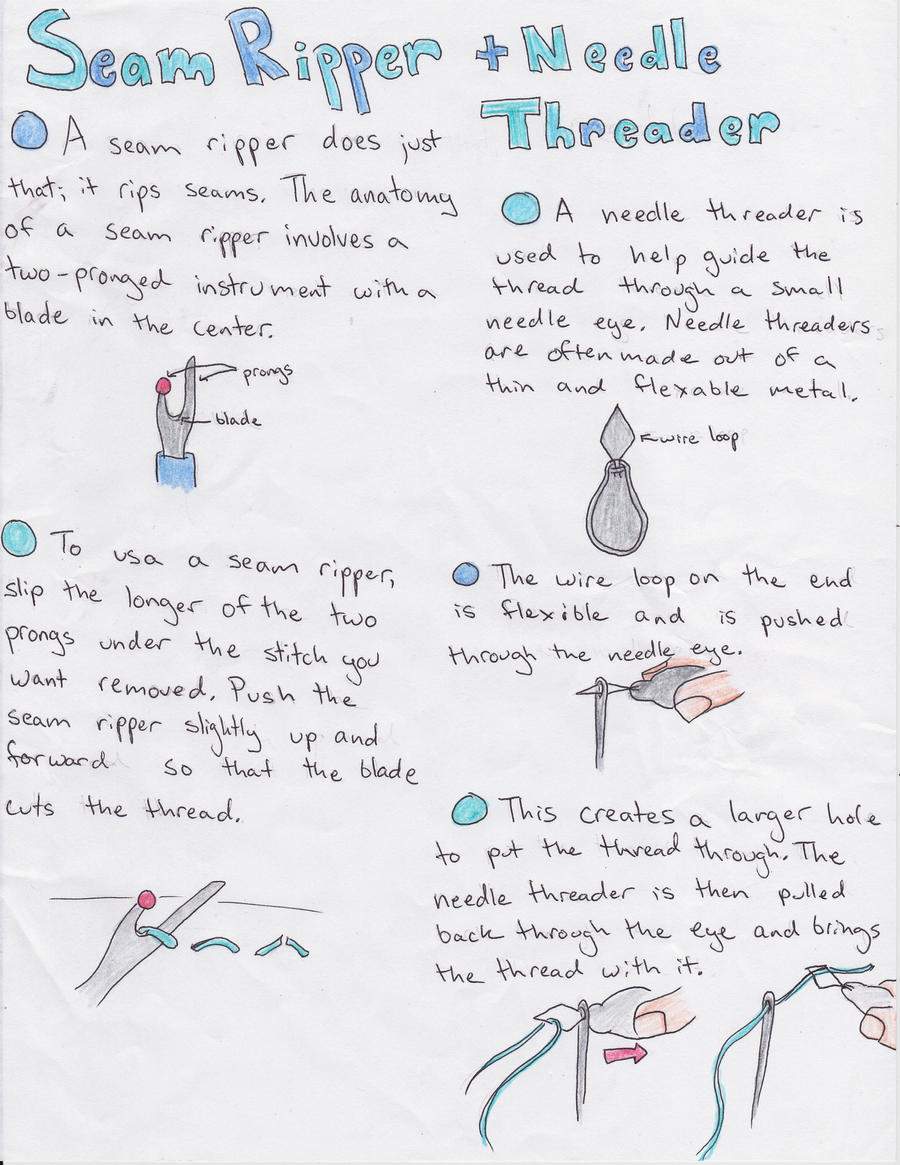 Seam Ripper + Needle
Threader
A seam ripper does just
that; it rips seams. The anatomy
of a seam ripper involves a
two-pronged instrument with a
blade in the center.
prongs
blade
To usa a seam ripper,
slip the longer of the two
prongs under the stitch you
want removed. Push the
seam ripper slightly up and
forward so that the blade
cuts the thread.
A needle threader is
used to help guide the
thread through a small
needle eye. Needle threaders
are often made out of a
thin and flexable metal.
wire loop
The wire loop on the end
is flexible and is pushed
through the needle eye.
This creates a larger hole
to put the thread through. The
needle threader is then pulled
back through the eye and brings
the thread with it.